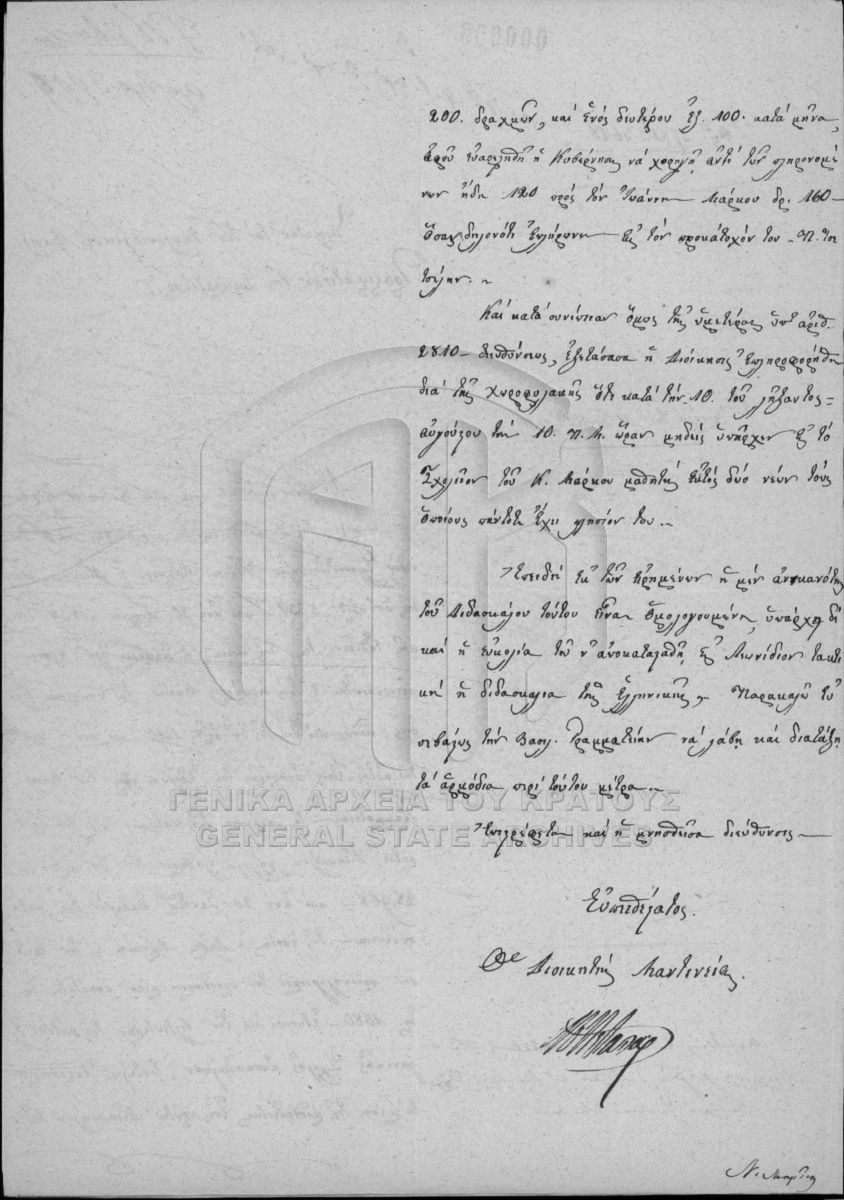 200. δραχμῶν, καὶ ἑνὸς δευτέρου ἐξ 100. κατὰ μῆνα,
ἀφοῦ εὐαρεστηθῇ ἡ Κυβέρνησις νὰ χορηγῇ ἀντὶ τῶν πληρονομέ
νων ἤδη 120 πρὸς τὸν Ἰωάννην Μάρκου δρ. 160 —
ὅσας δηλονότι ἐπλήρωνε εἰς τὸν προκάτοχόν του
Καὶ κατὰ συνέπειαν ὅμως τῆς ὑμετέρας ὑπ' ἀριθ.
2810 — διευθύνσεως, ἐξετάσασα ἡ Διοίκησις ἐπληροφορήθη
διὰ τῆς Χωροφυλακῆς ὅτι κατὰ τὴν 10. τοῦ λήξαντος
αὐγούστου τὴν 10. π. μ. ὥραν μηδεὶς ὑπῆρχεν εἰς τὸ
Σχολεῖον τοῦ Κ. Μάρκου μαθητὴς ἐκτὸς δύο νέων τοὺς
ὁποίους πάντοτε ἔχει πλησίον του —
Ἐπειδὴ ἐκ τῶν εἰρημένων ἡ μὲν ἀνικανότης
τοῦ Διδασκάλου τούτου εἶναι ὁμολογουμένη, ὑπάρχει δὲ
καὶ ἡ εὐκολία τοῦ ν' ἀποκατασταθῇ εἰς Λεωνίδιον τακτι
κὴ ἡ διδασκαλία τῆς Ἑλληνικῆς, Παρακαλῶ εὐ
σεβάστως τὴν Βασιλ. Γραμματείαν νὰ λάβῃ καὶ διατάξῃ
τὰ ἁρμόδια περὶ τούτου μέτρα —
Ἐπιστρέφεται καὶ ἡ μνησθεῖσα διεύθυνσις —
Εὐπειθέστατος
Ὁ Διοικητὴς Μαντινείας.
ΓΕΝΙΚΑ ΑΡΧΕΙΑ ΤΟΥ ΚΡΑΤΟΥΣ
GENERAL STATE ARCHIVES